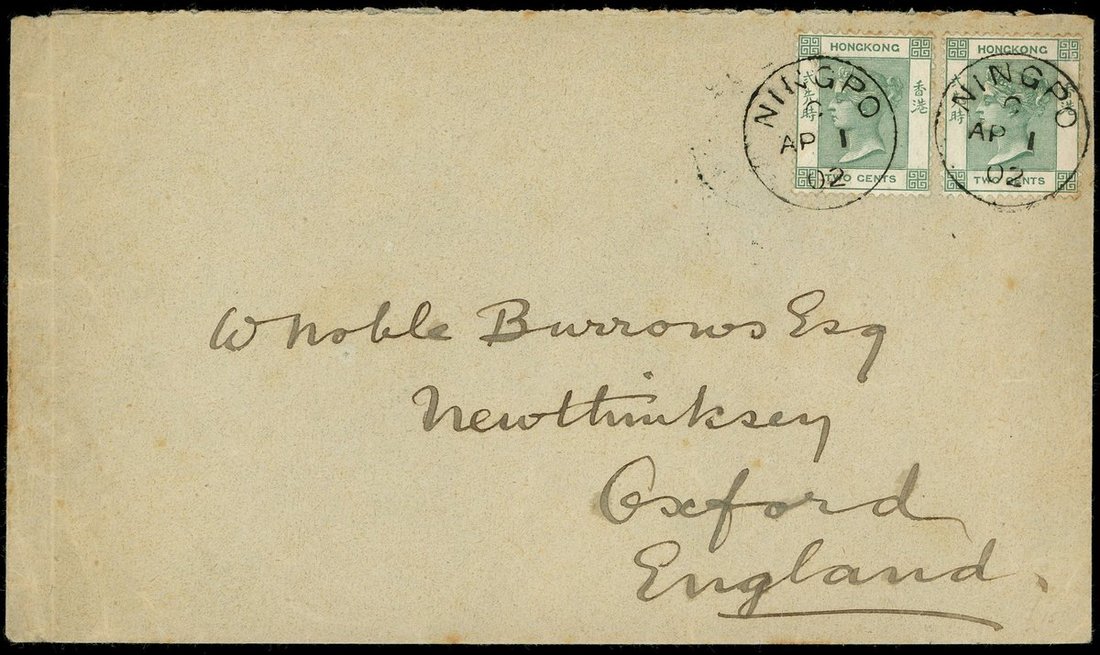 HONGKONG HONGKONG
NINGPO NINGPO
C C
AP 1 AP 1
02 02
香港 港
TWO CENTS TWO CENTS
W Noble Burrows Esq
New Hinksey
Oxford
England.